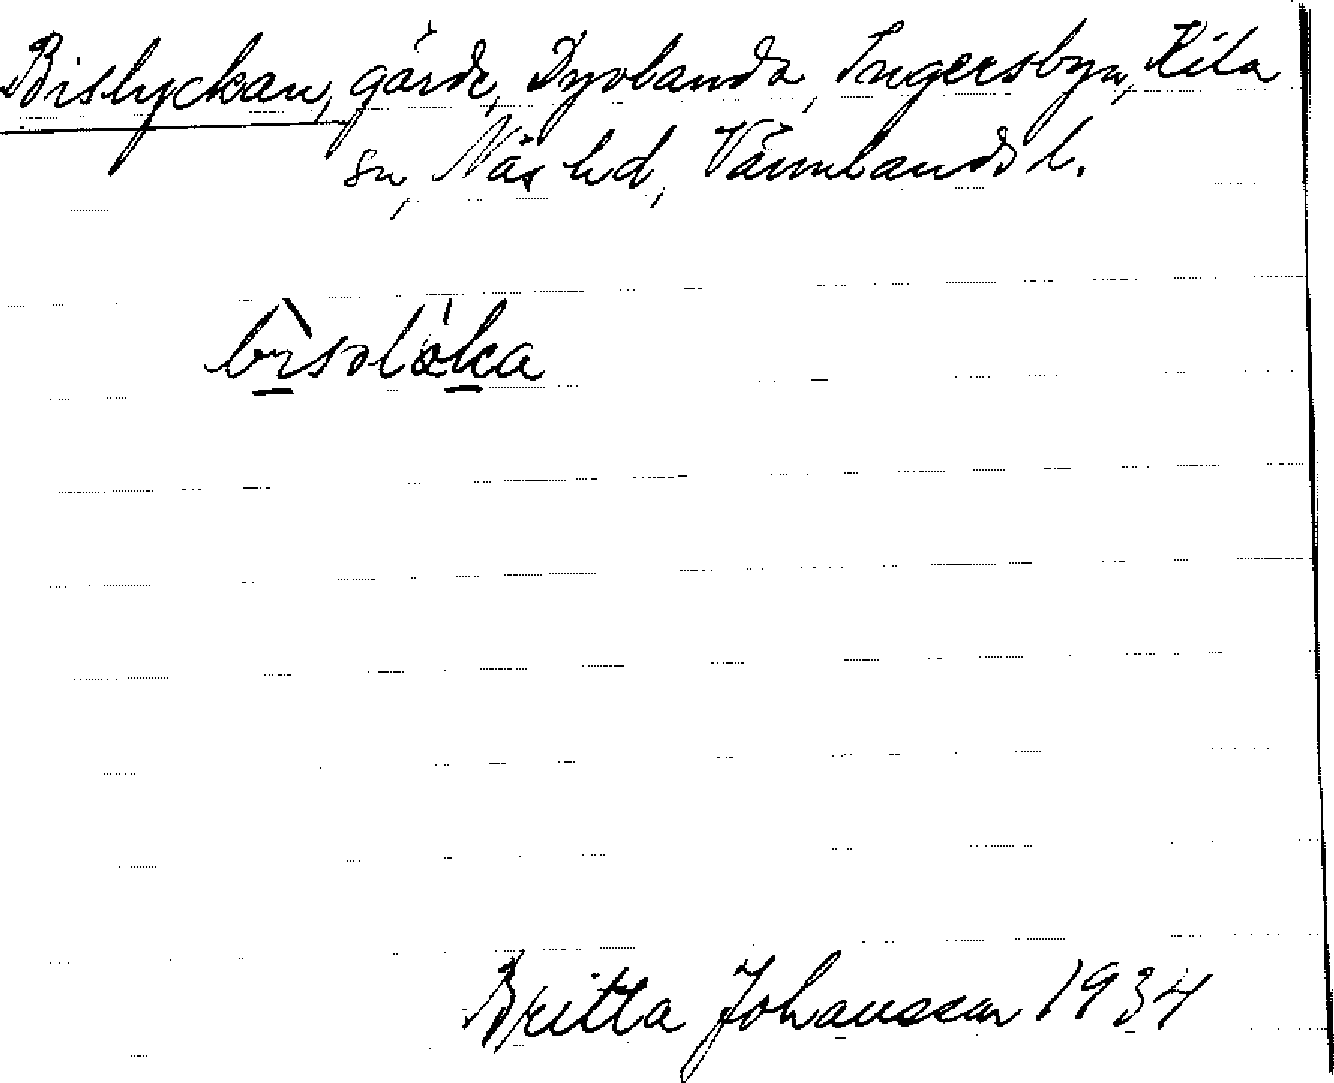 Bislyckan, gärde, Dyvlanda, Ingersbyn, Kila
sn, Näs hd, Värmlands l.
Britta Johansson 1934